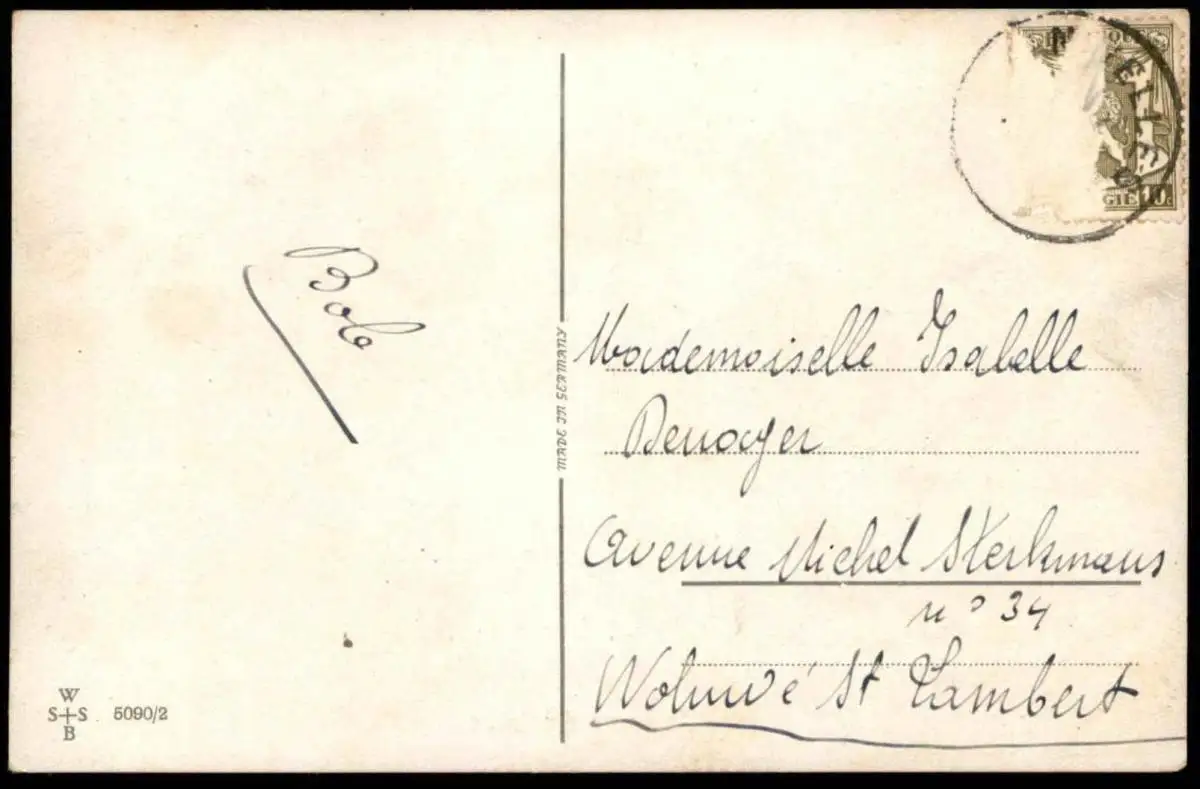 Bob
MADE IN GERMANY
W
S+S
B
5090/2
10c
Mademoiselle Isabelle
Denayer
Avenue Michel Sterkmans
n° 34
Woluwé St Lambert